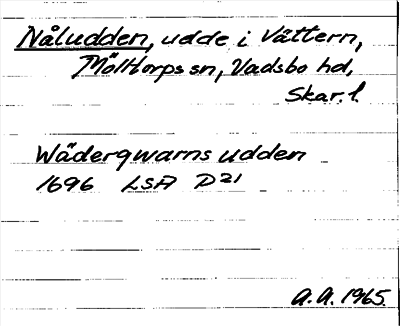 Nåludden, udde i Vättern,
Mölltorps sn, Vadsbo hd,
Skar. l.
Wäderqwarns udden
1696 LSA P21
A. A. 1965.